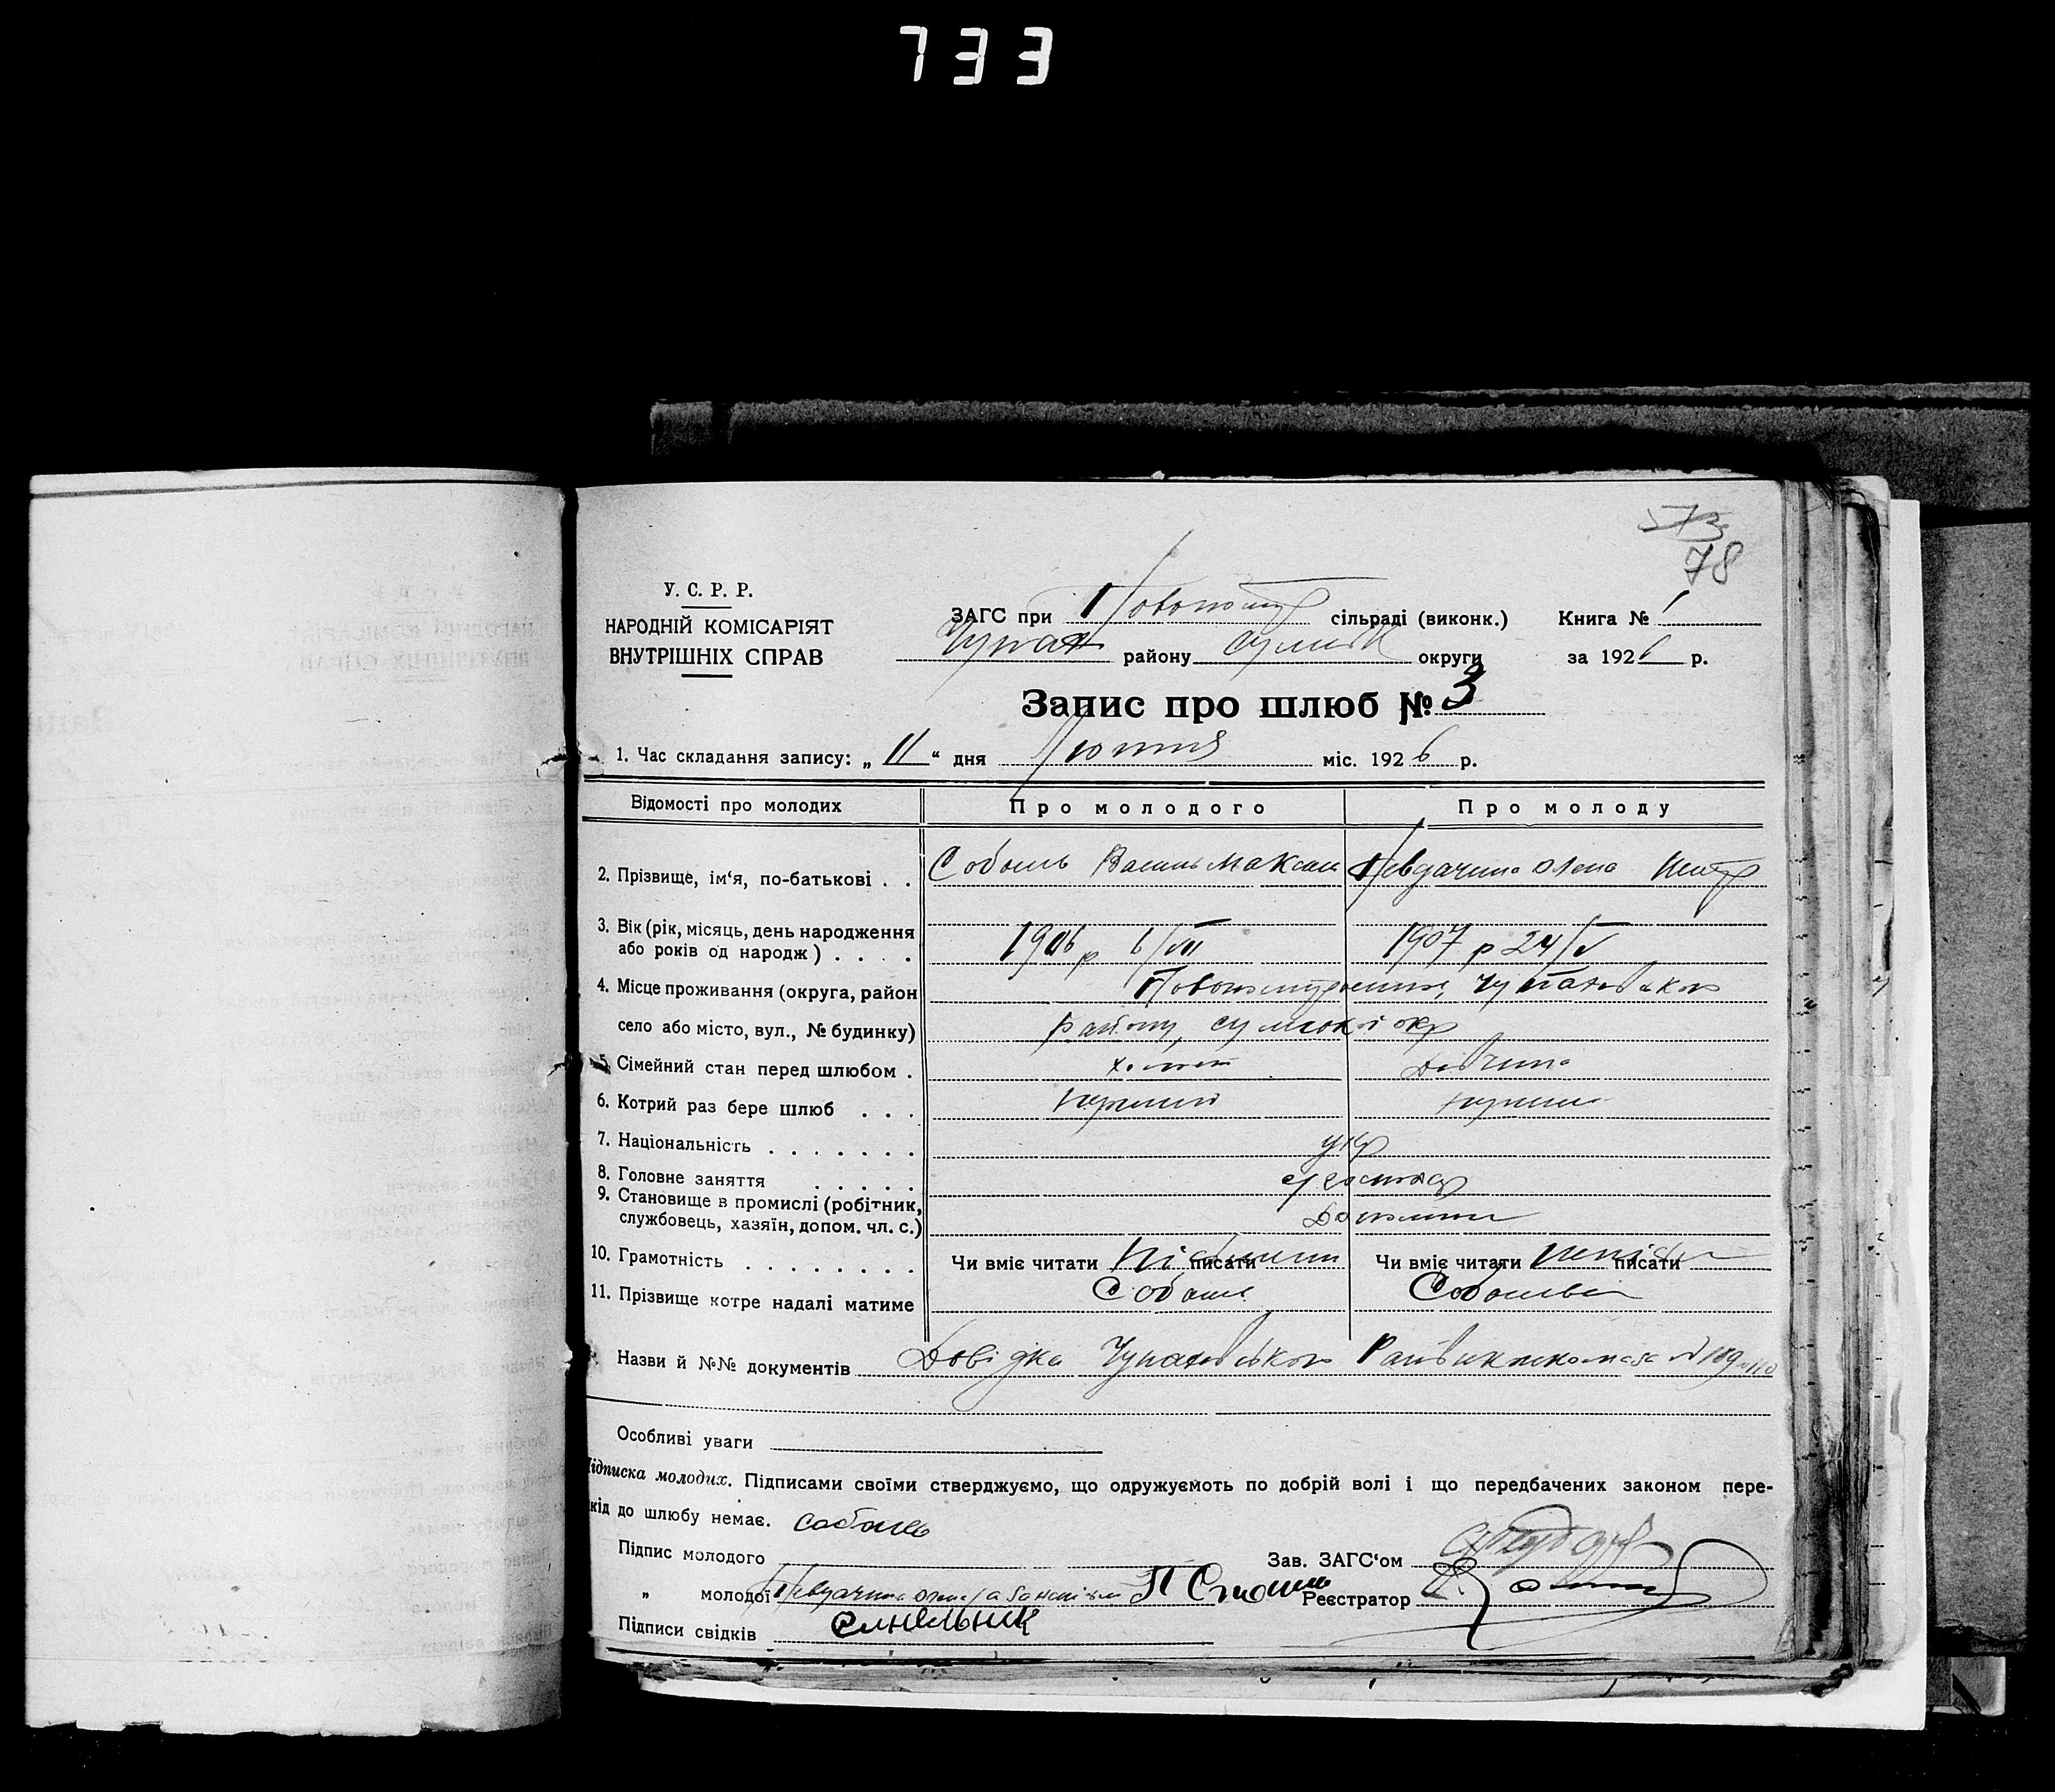 733
573
78
У. С. Р. Р.
НАРОДНІЙ КОМІСАРІЯТ
ВНУТРІШНІХ СПРАВ
ЗАГС при сільраді (виконк.) Книга № 1
Чупах району Сумськ округи за 1926 р.
Запис про шлюб № 3
1. Час складання запису: „ 11 “ дня Лютня міс. 1926 р.
Відомості про молодих Про молодого Про молоду
2. Прізвище, ім‘я, по-батькові . . Соболь Василь Максим Невдачина Олена Петр
3. Вік (рік, місяць, день народження
або років од народж) . . . . 1906 р 6/VII 1907 р 24/V
4. Місце проживання (округа, район Чупахівського
село або місто, вул., № будинку) району, сумської окр
5. Сімейний стан перед шлюбом . холост Дівчина
6. Котрий раз бере шлюб . . . перший перший
7. Національність . . . . . . . укр
8. Головне заняття . . . . .
9. Становище в промислі (робітник,
службовець, хазяїн, допом. чл. с.)
10. Грамотність . . . . . . . . Чи вміє читати писати Чи вміє читати писати
11. Прізвище котре надалі матиме Соболь
Назви й №№ документів Довідка Чупахівського Райвиконкома за № 109
Особливі уваги
Підписка молодих. Підписами своїми стверджуємо, що одружуємоть по добрій волі і що передбачених законом пере-
кід до шлюбу немає.
Підпис молодого Соболь Зав. ЗАГС‘ом
„ молодої Невдачина Олена Реєстратор
Підписи свідків Синельник